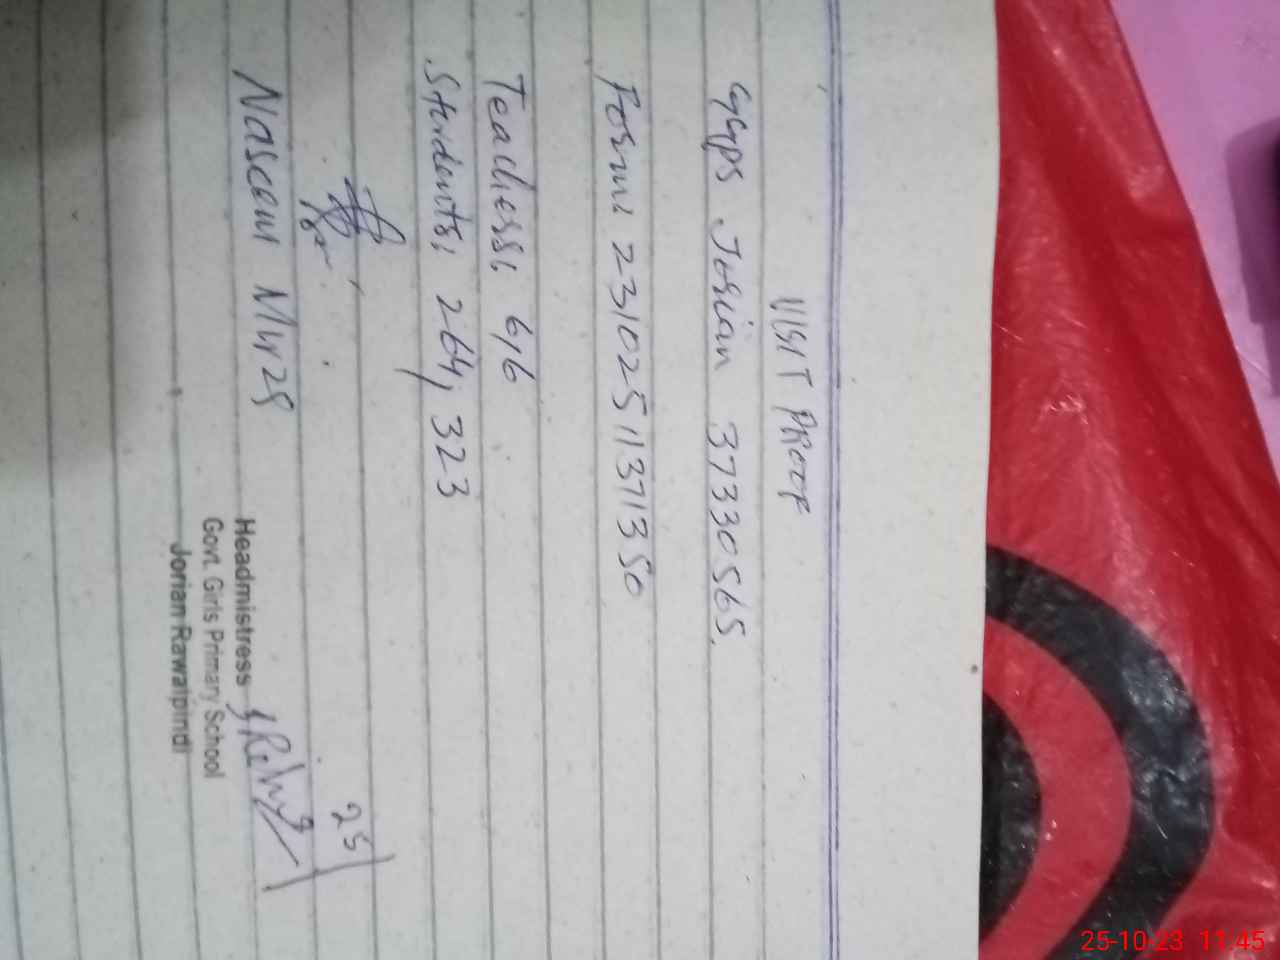 VISIT PROOF
GGPS Jorian 37330565.
Form: 231025113711350
Teachers: 6/6
Students: 264, 323
Naseem Mirza
25
Headmistress
Govt. Girls Primary School
Jorian Rawalpindi
25-10-23 11:45